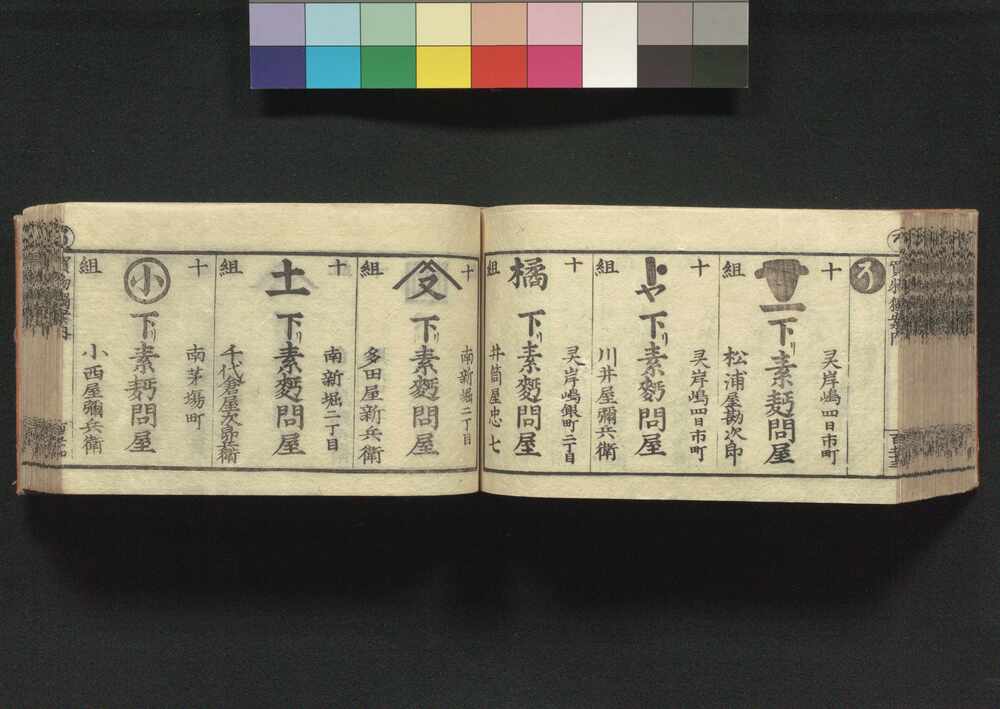 ろ
十
組
一
灵岸嶋四日市町
下リ素麪問屋
松浦屋勘次郎
十
組
トヤ
灵岸嶋四日市町
下リ素麪問屋
川井屋彌兵衛
十
組
橘
灵岸嶋銀町二丁目
下リ素麪問屋
井筒屋忠七
十
組
叉
南新堀二丁目
下リ素麪問屋
多田屋新兵衛
十
組
土
南新堀二丁目
下リ素麪問屋
千代倉屋次郎兵衛
十
組
小
南茅場町
下リ素麪問屋
小西屋彌兵衛